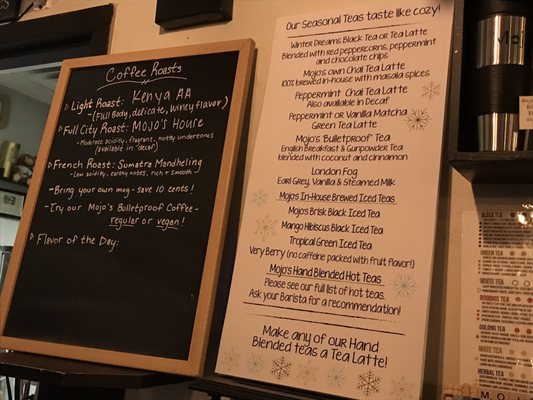 Coffee Roasts
Light Roast: Kenya AA
(Full Body, delicate, winey flavor)
Full City Roast: Mojo's House
- Moderate acidity, fragrant, nutty undertones
(available in "decaf")
French Roast: Sumatra Mandheling
- Low acidity, earthy notes, rich & smooth
- Bring your own mug - save 10 cents!
- Try our Mojo's Bulletproof Coffee -
regular or vegan!
Flavor of the Day:
Our Seasonal Teas taste like cozy!
Winter Dreams Black Tea or Tea Latte
Blended with red peppercorns, peppermint
and chocolate chips
Mojo's own Chai Tea Latte
100% brewed in-house with masala spices
Peppermint Chai Tea Latte
Also available in Decaf
Peppermint or Vanilla Matcha
Green Tea Latte
Mojo's Bulletproof Tea
English Breakfast & Gunpowder Tea
blended with coconut and cinnamon
London Fog
Earl Grey, Vanilla & Steamed Milk
Mojo's In-House Brewed Iced Teas
Mojo's Brisk Black Iced Tea
Mango Hibiscus Black Iced Tea
Tropical Green Iced Tea
Very Berry (no caffeine packed with fruit flavor!)
Mojo's Hand Blended Hot Teas
Please see our full list of hot teas.
Ask your Barista for a recommendation!
Make any of our Hand
Blended teas a Tea Latte!
BLACK TEA
GREEN TEA
ROOIBOS TEA
OOLONG TEA
WHITE TEA
HERBAL TEA